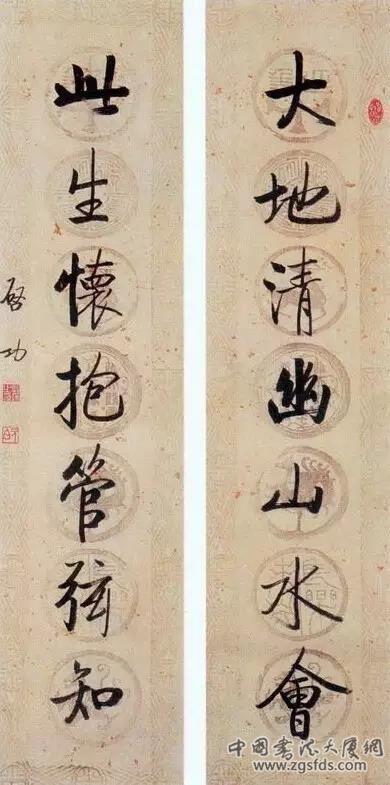 大地清幽山水會
此生懷抱管弦知
啓功
中国书法大厦网
www.zgsfds.com